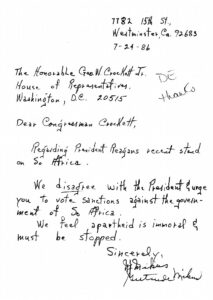 7782 15th St.,
Westminster, Ca. 92683
7-24-86
The Honorable Geo. W. Crockett Jr.
House of Representatives,
Washington, D.C. 20515
DE
thanks
Dear Congressman Crockett,
Regarding President Reagans recent stand
on So Africa.
We disagree with the President & urge
you to vote sanctions against the govern-
ment of So Africa.
We feel apartheid is immoral &
must be stopped.
Sincerely,